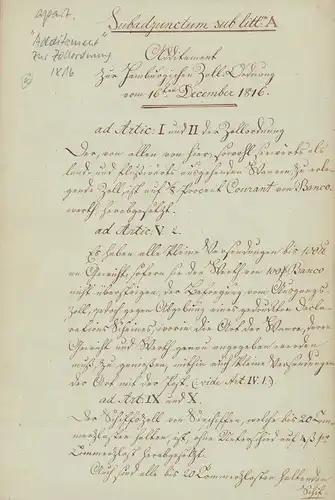 apart.
"Additament"
zur Zollordnung
1816
Subadjunctum sub litt. A
Additament
zur Hamburgischen Zoll-Ordnung
vom 16ten December 1816.
ad Artic: I und II der Zollordnung
Der, von allen von hier, sowohl seewärts als
land und flußwärts ausgehenden Waaren, zu erle-
gende Zoll, ist auf ½ Procent Courant von Banco-
werth herabgesetzt.
ad Artic. V
Es haben alle kleine Versendungen bis 100 ℔
an Gewicht, sofern sie den Werth von 100 Banco
nicht übersteigen, der Befreyung vom Ausgangs
Zoll, jedoch gegen Abgebung eines gedruckten Decla-
rations Scheines, worin die Art der Waare, deren
Gewicht und Werth genau angegeben werden
muß, zu genießen, mithin auch kleine Versendungen
der Art mit der Post. (vide Art. IV. 1.)
ad Art. IX und X.
Der Schiffszoll von Seeschiffen, welche bis 20 Com-
merzlasten halten, ist, ohne Unterschied auf
Commerzlast herabgesetzt.
Auch sind alle bis 20 Commerzlasten haltenden
Schif-